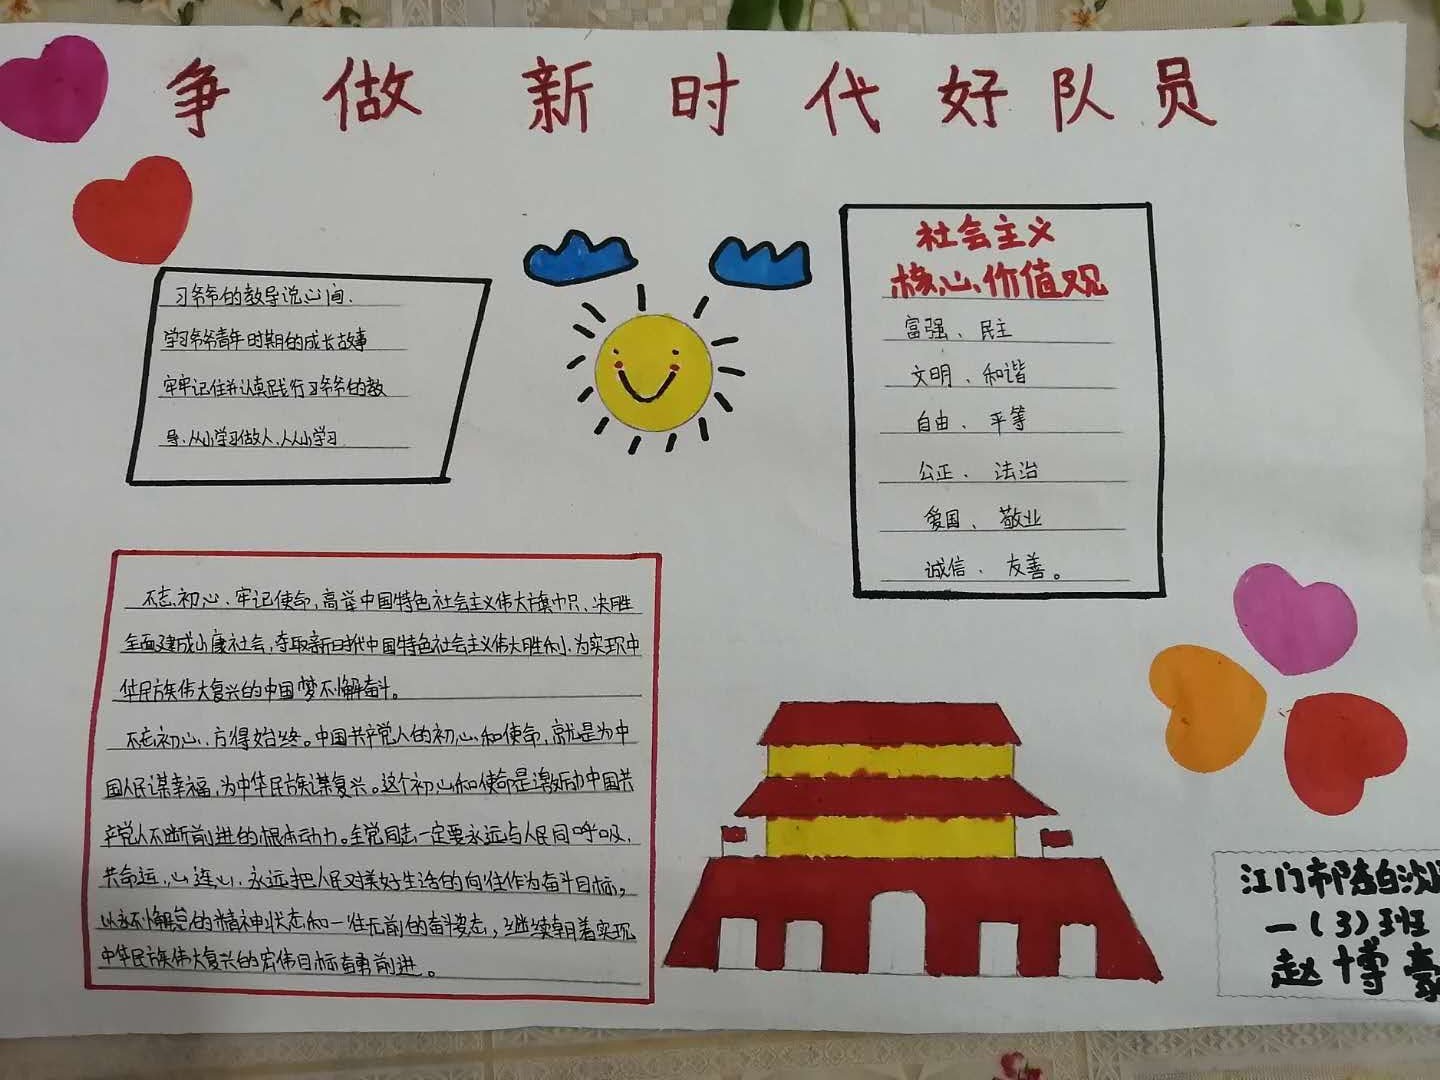 争做新时代好队员
习爷爷的教导说心间、
学习爷爷青年时期的成长故事
牢牢记住并认真践行习爷爷的教
导、从小学习做人、从小学习
社会主义
核心价值观
富强、民主
文明、和谐
自由、平等
公正、法治
爱国、敬业
诚信、友善。
不忘初心、牢记使命,高举中国特色社会主义伟大旗帜、决胜
全面建成小康社会,夺取新时代中国特色社会主义伟大胜利、为实现中
华民族伟大复兴的中国梦不懈奋斗。
不忘初心、方得始终。中国共产党人的初心和使命,就是为中
国人民谋幸福,为中华民族谋复兴。这个初心和使命是激励中国共
产党人不断前进的根本动力。全党同志一定要永远与人民同呼吸、
共命运、心连心、永远把人民对美好生活的向往作为奋斗目标,
以永不懈怠的精神状态和一往无前的奋斗姿态,继续朝着实现
中华民族伟大复兴的宏伟目标奋勇前进。
江门市陈白沙
一(3)班
赵博豪